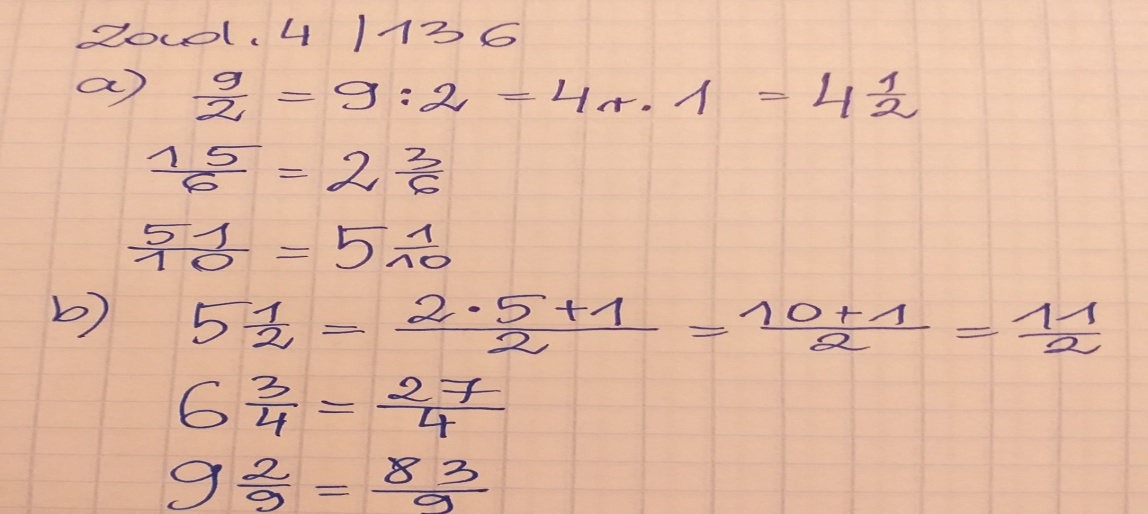 Zad. 4 / 136
a) 9/2 = 9 : 2 = 4 r. 1 = 4 1/2
15/6 = 2 3/6
51/10 = 5 1/10
b) 5 1/2 = 2·5+1/2 = 10+1/2 = 11/2
6 3/4 = 27/4
9 2/9 = 83/9